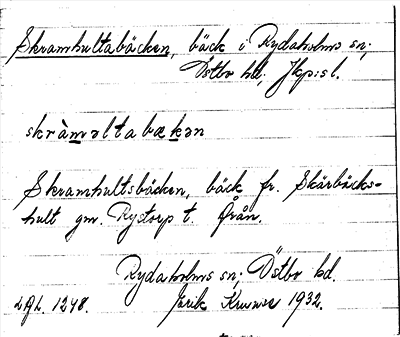 Skramhultabäcken, bäck i Rydaholms sn;
Östbo hd; Jkp:s l.
skràmǝltabækǝn
Skramhultsbäcken, bäck fr. Skärbäcks-
hult gm. Rystorp t. Årån.
Rydaholms sn; Östbo hd.
1248. 1932.